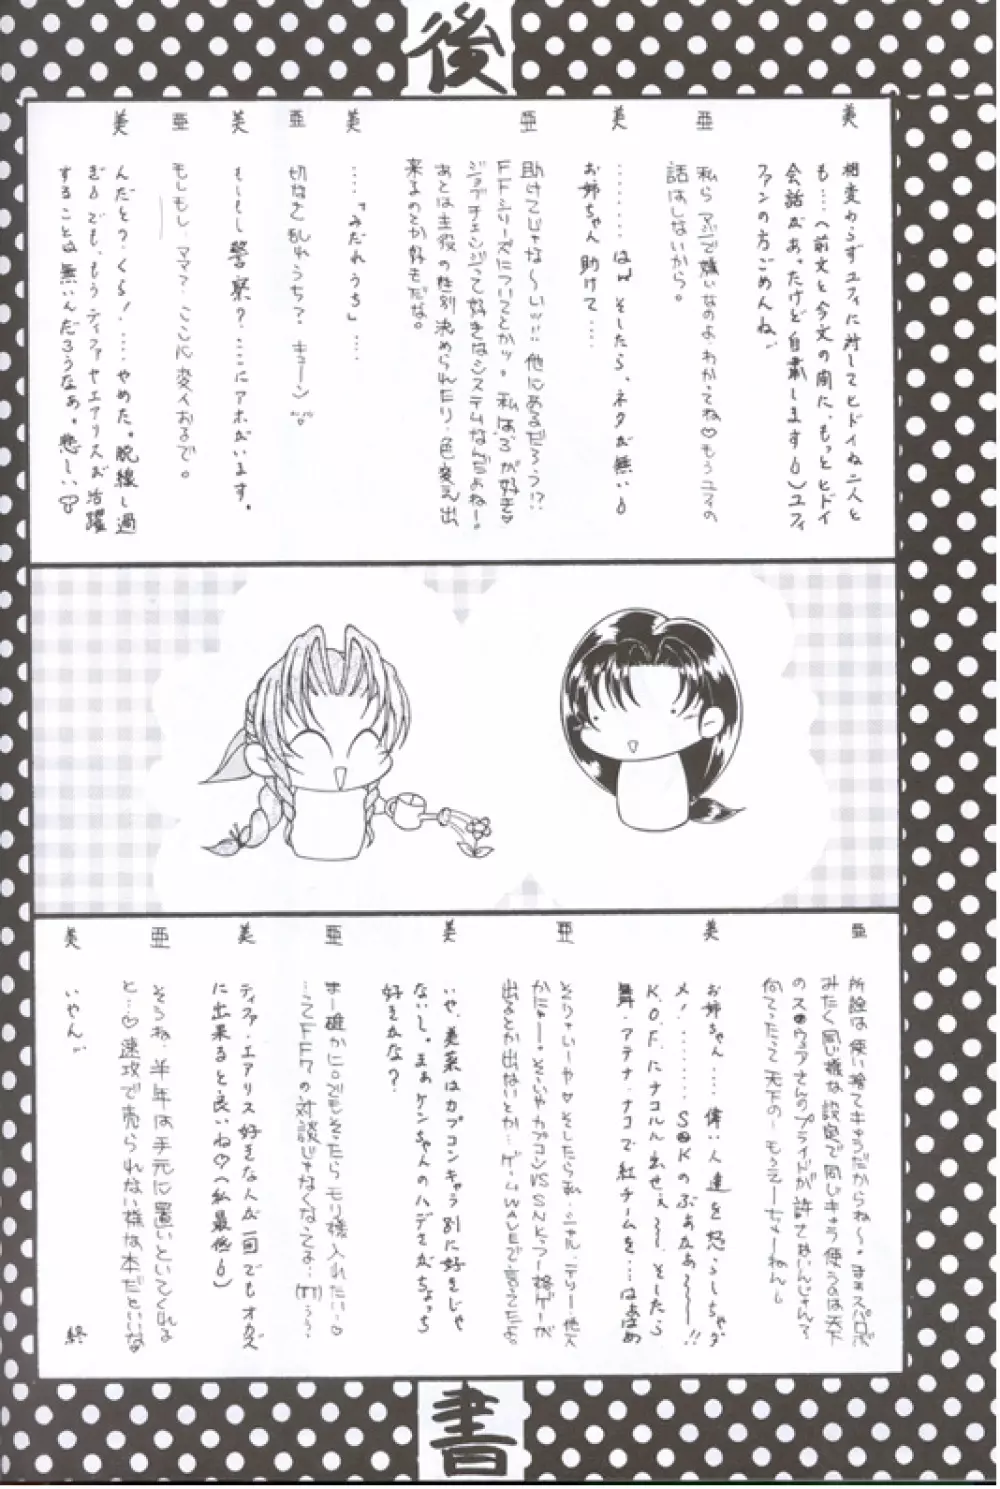 後
美
相変わらずユフィに対してヒドイね二人と
も…。(前文と今文の間に、もっとヒドイ
会話があったけど自粛します)ユフィ
ファンの方ごめんね。
亜
私らマジで嫌いなのよわかってね♡もうユフィの
話はしないから。
美
そしたら、ネタが無い
お姉ちゃん助けて……
亜
助けてじゃな〜いッ!!他にあるだろう!?
FFシリーズについてとかッ。私は5が好き♡
ジョブチェンジって好きなシステムなんだよねー。
あとは主役の性別決められたり、色変え出
来るのとか好きだな。
美
……「みだれうち」……
亜
切なさ乱れうち?・キューン
美
もしもし警察?…ここにアホがいます。
亜
もしもし、ママ?ここに変人おるで。
美
んだとう?くら!……やめた。脱線し過
ぎ。でも、もうティファやエアリスが活躍
することは無いんだろうなぁ。悲しい
亜
所詮は使い捨てキャラだからね〜。
みたく同じ様な設定で同じキャラ使うのは天下
のス●ウェアさんのプライドが許さないんじゃん?
何てったって天下の…もうえーちゅーねん。
美
お姉ちゃん……偉い人達を怒らしちゃダ
メ!……S●Kのぶぁかぁ〜!!
K.O.F.にナコルル出せぇ〜。そしたら
舞・アテナ・ナコで紅チームを…
亜
そりゃいーや♡そしたら私・シャル・テリー・
かなー。そーいやカプコンVSSNKって格ゲーが
出るとか出ないとか…ゲームWAVEで言ってたよ。
美
いや、美菜はカプコンキャラ別に好きじゃ
ないし。まぁケンちゃんのハデさがちょっち
好きかな?
亜
まー確かに。でもそったらモリ様入れたい♡
…ってFF7の対談じゃなくなってる…
美
ティファ・エアリス好きな人が一回でもオカズ
に出来ると良いね♡(私最低)
亜
そうね、半年は手元に置いといてくれる
と…♡速攻で売られない様な本だといいな
美
いやん
終
書